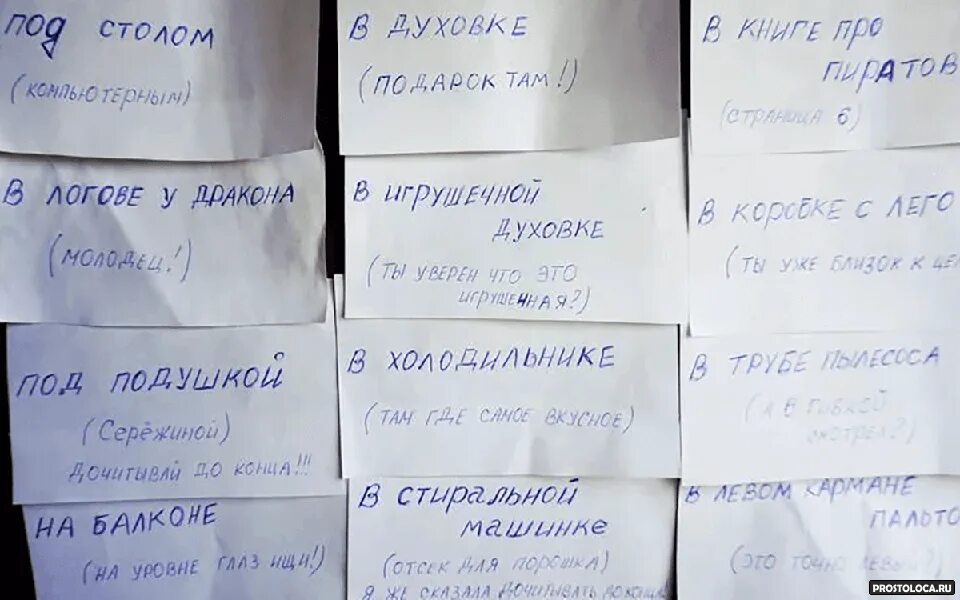 под столом
(компьютерным)
в духовке
(подарок там!)
в книге про
пиратов
(страница 6)
в логове у дракона
(молодец!)
в игрушечной
духовке
(ты уверен что это
игрушечная?)
в коробке с лего
(ты уже близок к це
под подушкой
(Серёжиной)
дочитывай до конца!!!
в холодильнике
(там где самое вкусное)
в трубе пылесоса
(а в гибкой
смотрел?)
на балконе
(на уровне глаз ищи!)
в стиральной
машинке
(отсек для порошка)
я же сказала дочитывать до конца
в левом кармане
пальто
(это точно левый?)
PROSTOLOCA.RU